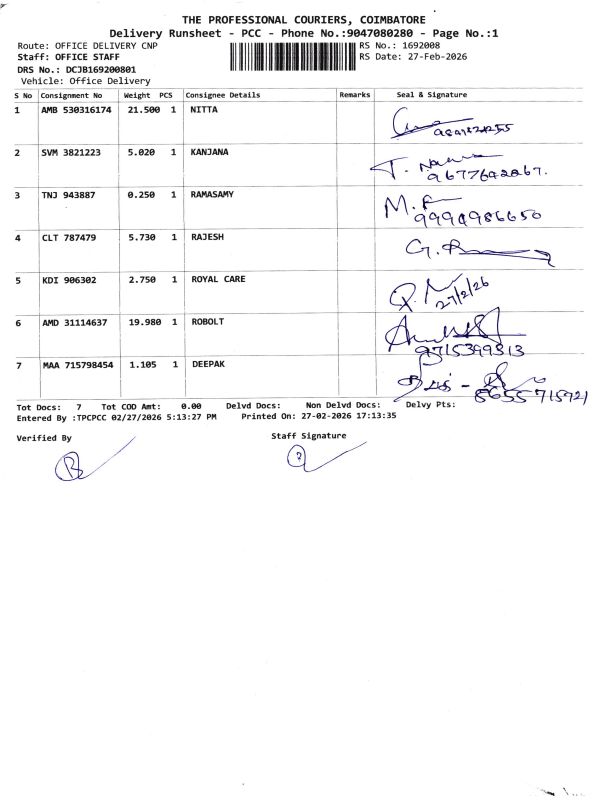 THE PROFESSIONAL COURIERS, COIMBATORE
Delivery Runsheet - PCC - Phone No.:9047080280 - Page No.:1
Route: OFFICE DELIVERY CNP RS No.: 1692008
Staff: OFFICE STAFF RS Date: 27-Feb-2026
DRS No.: DCJB169200801
Vehicle: Office Delivery
S No Consignment No Weight PCS Consignee Details Remarks Seal & Signature
1 AMB 530316174 21.500 1 NITTA
2 SVM 3821223 5.020 1 KANJANA
9677642267.
3 TNJ 943887 0.250 1 RAMASAMY
9994986650
4 CLT 787479 5.730 1 RAJESH
5 KDI 906302 2.750 1 ROYAL CARE
27/2/26
6 AMD 31114637 19.980 1 ROBOLT
9715399313
7 MAA 715798454 1.105 1 DEEPAK
8655715921
Tot Docs: 7 Tot COD Amt: 0.00 Delvd Docs: Non Delvd Docs: Delvy Pts:
Entered By :TPCPCC 02/27/2026 5:13:27 PM Printed On: 27-02-2026 17:13:35
Verified By Staff Signature